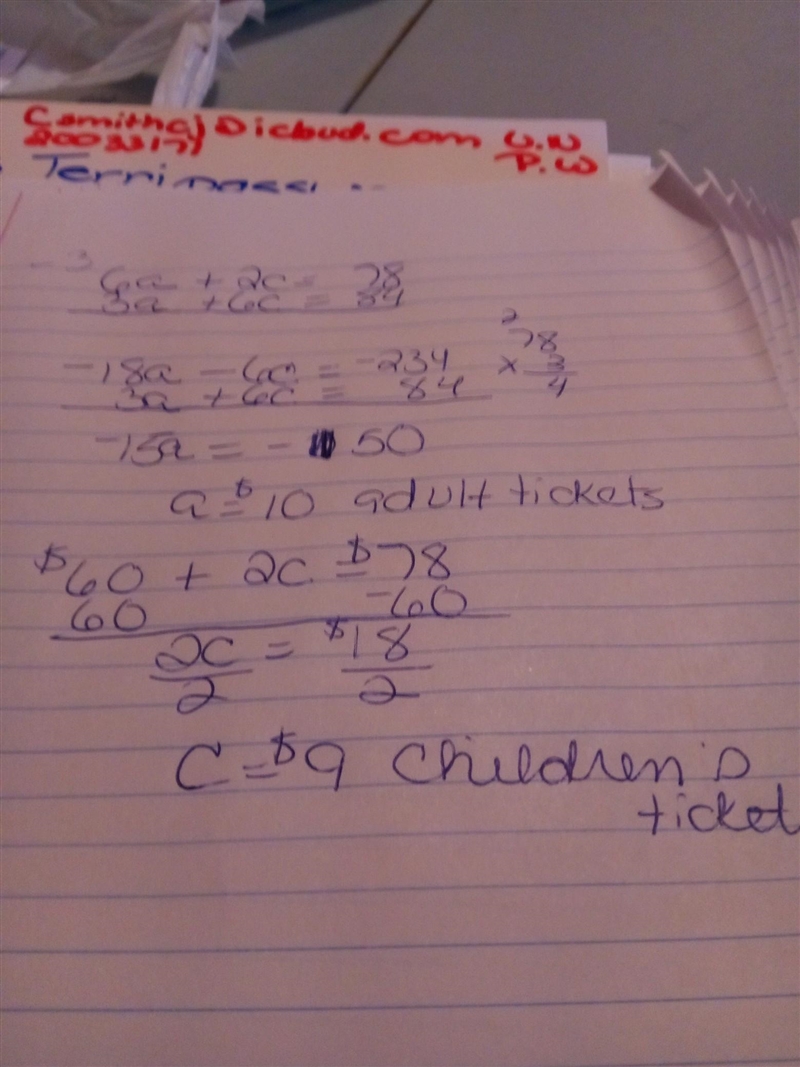 Csmitha) Dicbud.com U.N
2003317) P.W
Terrinassi
-3
6a + 2c = 78
3a + 6c = 84
-18a - 6c = -234
3a + 6c = 84
2
78
x 3
4
-15a = - 50
a = $10 adult tickets
$60 + 2c = $78
60 -60
2c = $18
2 2
C = $9 Children's
ticket